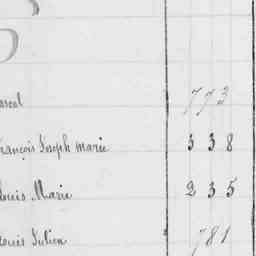 ascal 773
François Joseph Marie 338
Louis Marie 235
Louis Julien 781